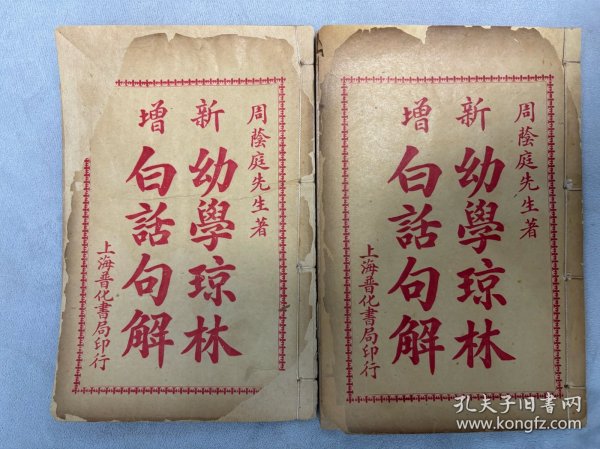 周蔭庭先生著
新增
幼學琼林
白話句解
上海普化書局印行
周蔭庭先生著
新增
幼學琼林
白話句解
上海普化書局印行
孔夫子旧书网
www.kongfz.com